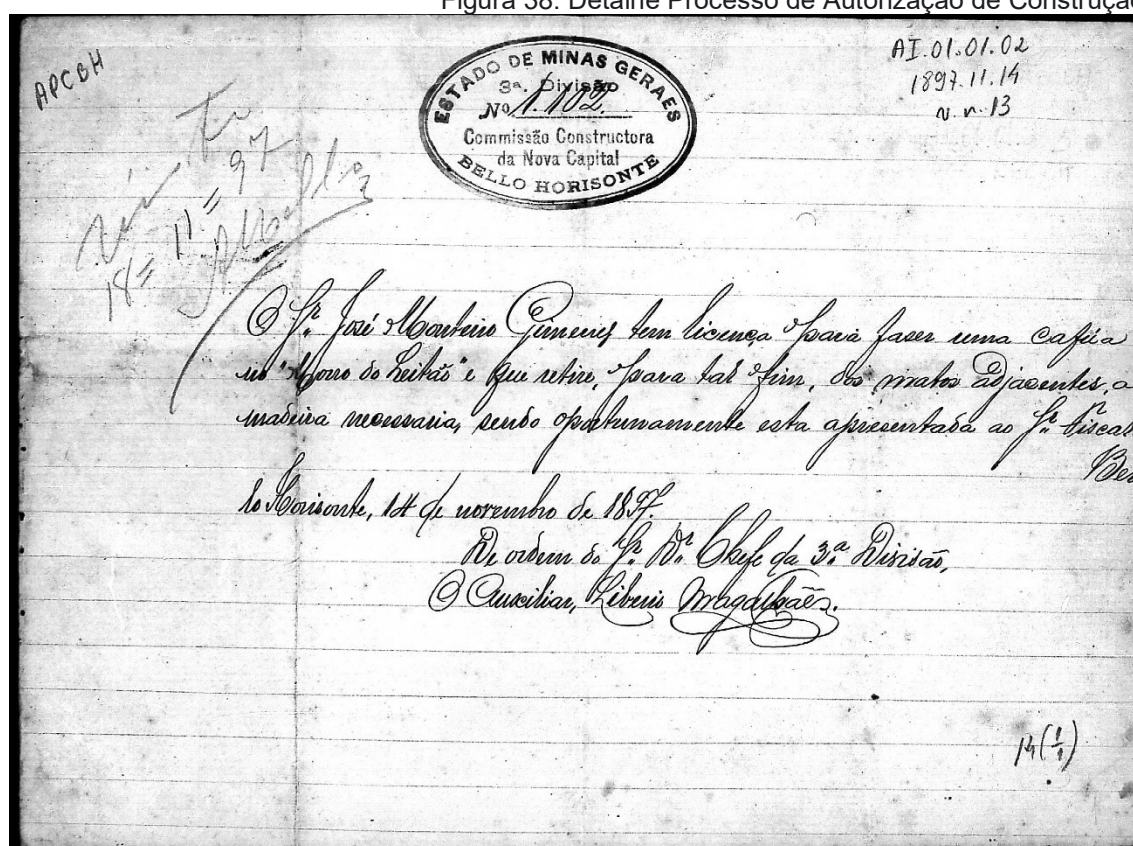 Figura 38: Detalhe Processo de Autorização de Construção
APCBH
AI.01.01.02
1897.11.14
n.n.13
ESTADO DE MINAS GERAES
3ª. Divisão
Nº 1.102
Commissão Constructora
da Nova Capital
BELLO HORISONTE
18=11=97
O Sr. José Monteiro Gimenes tem licença para faser uma cafúa
no "Morro do Leitão" e que retire, para tal fim, dos matos adjacentes, a
madeira necessaria, sendo oportunamente esta apresentada ao Sr. Fiscal
Bel
lo Horisonte, 14 de novembro de 1897.
De ordem do Sr. Dr. Chefe da 3ª Divisão,
O Auxiliar, Liberio Magalhães.